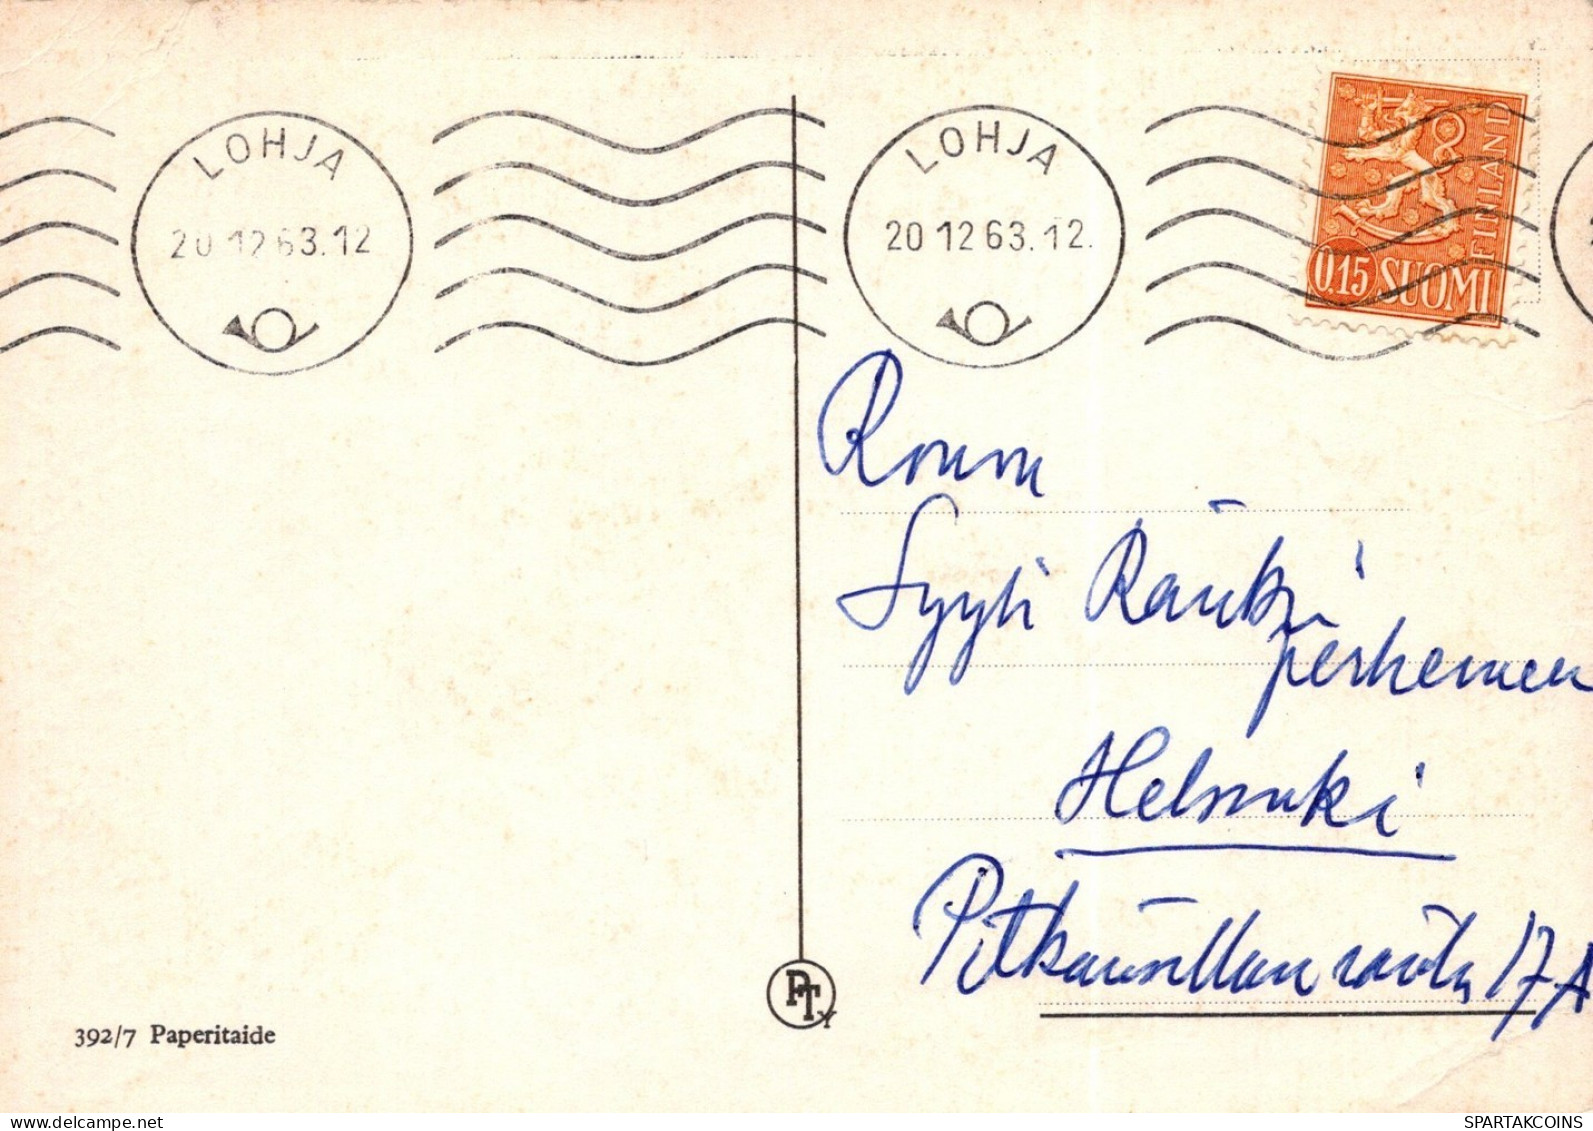 LOHJA
20 12 63.12
LOHJA
20 12 63.12.
0.15 SUOMI
FINLAND
Rouva
Syyli
perheineen
Helsinki
Pitkänsillanranta 17 A
PTy
392/7 Paperitaide
SPARTAKCOINS
delcampe.net